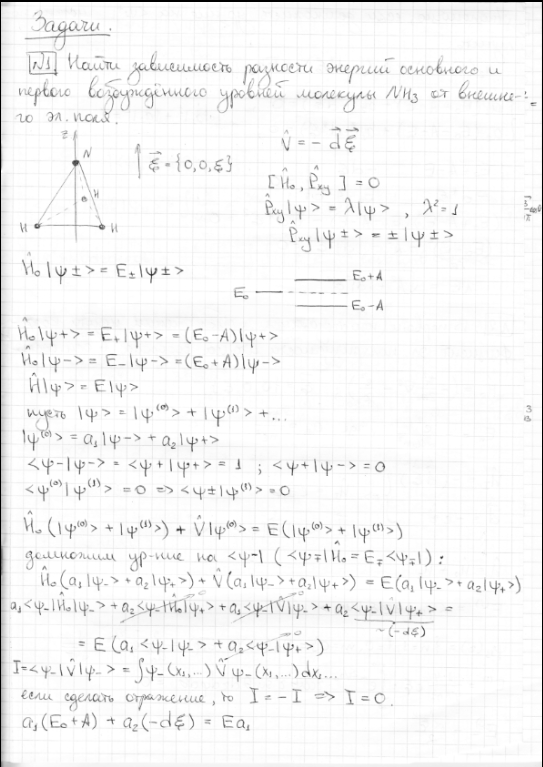 Задачи.
N1 Найти зависимость разности энергий основного и
первого возбуждённого уровней молекулы NH3 от внешне-
го эл. поля.
z N
ξ⃗ = {0,0,ξ}
V̂ = - d⃗ ξ⃗
[Ĥ₀, P̂xy] = 0
H
P̂xy|ψ> = λ|ψ> , λ² = 1
H H
P̂xy|ψ±> = ±|ψ±>
Ĥ₀|ψ±> = E±|ψ±>
E₀+A
E₀
E₀-A
Ĥ₀|ψ+> = E₊|ψ+> = (E₀-A)|ψ+>
Ĥ₀|ψ-> = E₋|ψ-> = (E₀+A)|ψ->
Ĥ|ψ> = E|ψ>
пусть |ψ> = |ψ⁽⁰⁾> + |ψ⁽¹⁾> + ...
|ψ⁽⁰⁾> = a₁|ψ-> + a₂|ψ+>
<ψ-|ψ-> = <ψ+|ψ+> = 1 ; <ψ+|ψ-> = 0
<ψ⁽⁰⁾|ψ⁽¹⁾> = 0 => <ψ±|ψ⁽¹⁾> = 0
Ĥ₀(|ψ⁽⁰⁾> + |ψ⁽¹⁾>) + V̂|ψ⁽⁰⁾> = E(|ψ⁽⁰⁾> + |ψ⁽¹⁾>)
домножим ур-ние на <ψ-| (<ψ∓|Ĥ₀ = E∓<ψ∓|) :
Ĥ₀(a₁|ψ₋> + a₂|ψ₊>) + V̂(a₁|ψ₋> + a₂|ψ₊>) = E(a₁|ψ₋> + a₂|ψ₊>)
a₁<ψ₋|Ĥ₀|ψ₋> + a₂<ψ₋|Ĥ₀|ψ₊> + a₁<ψ₋|V̂|ψ₋> + a₂<ψ₋|V̂|ψ₊> =
~(-dξ)
= E(a₁<ψ₋|ψ₋> + a₂<ψ₋|ψ₊>)
I = <ψ₋|V̂|ψ₋> = ∫ψ₋(x₁,...) V̂ ψ₋(x₁,...)dx₁...
если сделать отражение, то I = -I => I = 0.
a₁(E₀+A) + a₂(-dξ) = Ea₁